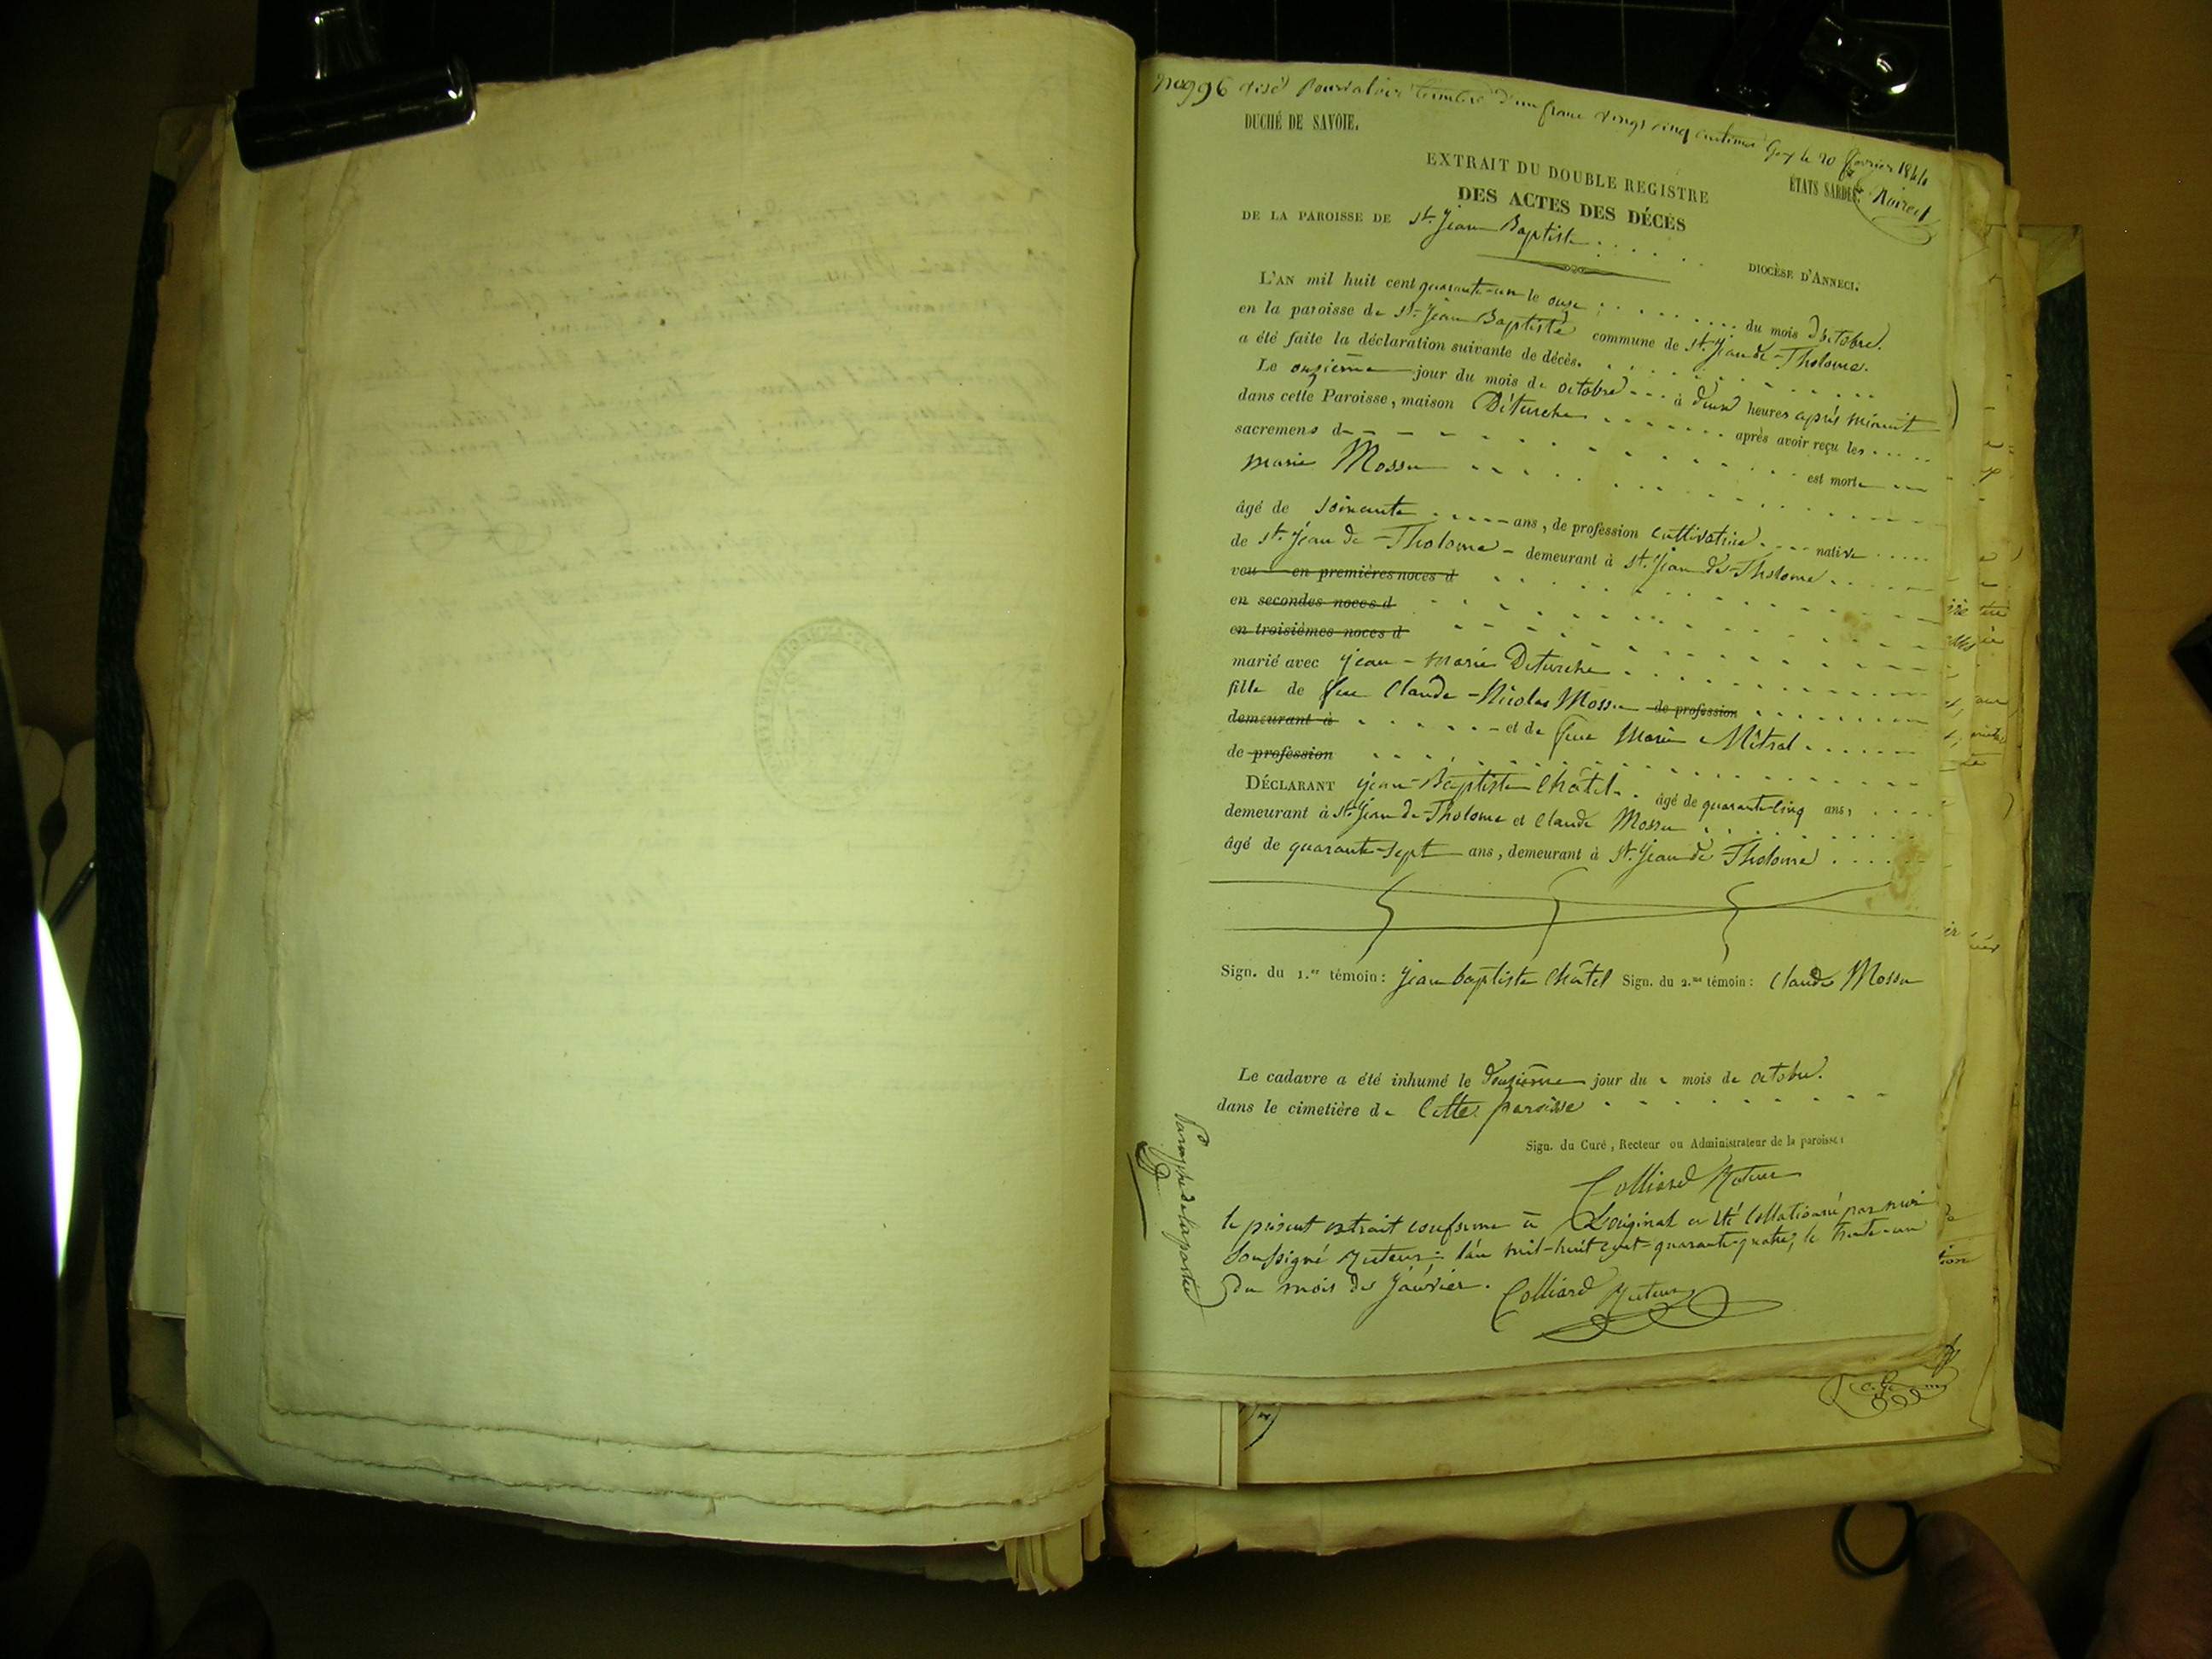 no 996 visé pour valoir timbre d'un franc vingt cinq centimes Gex le 20 février 1844
DUCHÉ DE SAVOIE.
ÉTATS SARDES.
EXTRAIT DU DOUBLE REGISTRE
DES ACTES DES DÉCÈS
DE LA PAROISSE DE St. Jean Baptiste
DIOCÈSE D'ANNECI.
L'AN mil huit cent quarante-un le onze du mois d'octobre.
en la paroisse de St. Jean Baptiste commune de St. Jean de-Tholome.
a été faite la déclaration suivante de décès.
Le onzième jour du mois de octobre à deux heures après minuit
dans cette Paroisse, maison Déturche après avoir reçu les
sacremens d
marie Mossu est morte
âgé de soixante ans, de profession cultivatrice native
de St. Jean de-Tholome demeurant à St. Jean de-Tholome
veu en premières noces d
en secondes noces d
en troisièmes noces d
marié avec Jean-Marie Déturche
fille de feu Claude-Nicolas Mossu de profession
demeurant à et de feue Marie Métral
de profession
DÉCLARANT Jean-Baptiste Châtel âgé de quarante-cinq ans,
demeurant à St. Jean de-Tholome et Claude Mossu
âgé de quarante-sept ans, demeurant à St. Jean de-Tholome
Sign. du 1.er témoin: Jean baptiste Châtel Sign. du 2.me témoin: Claude Mossu
Le cadavre a été inhumé le douzième jour du mois de octobre.
dans le cimetière de Cette paroisse
Sign. du Curé, Recteur ou Administrateur de la paroisse:
Colliard Recteur
le présent extrait conforme à L'original a été Collationné par moi
Soussigné Recteur; l'an mil-huit cent-quarante-quatre, le trente-un
du mois de Janvier. Colliard Recteur
Paraphe de la partie